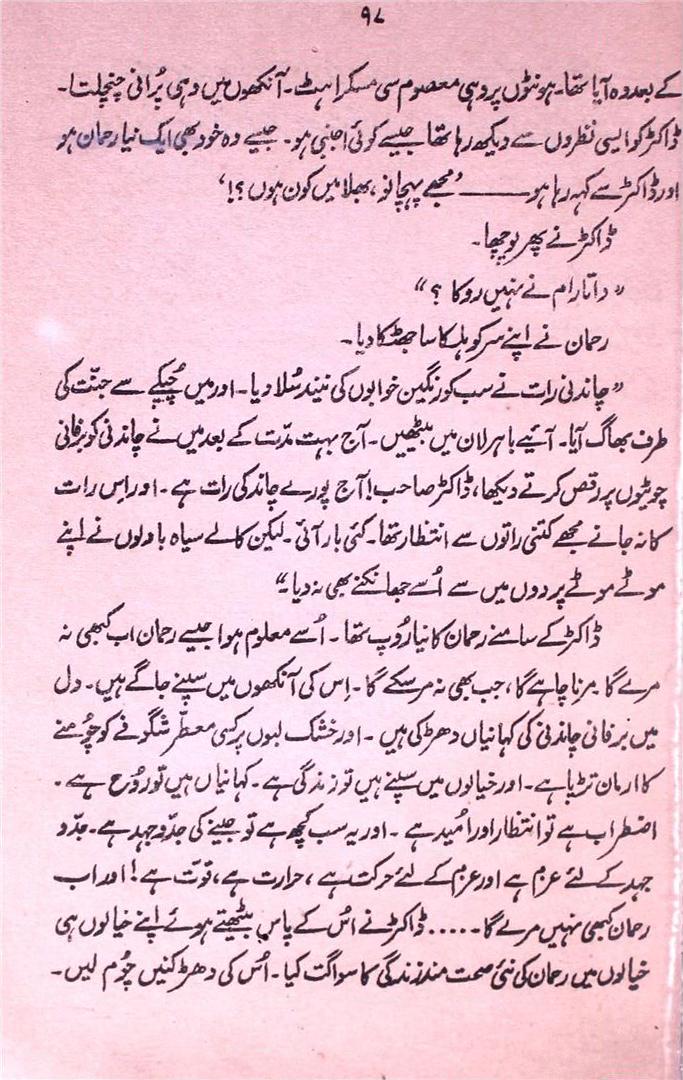 ۹۸
کے بعد وہ آیا تھا۔ ہونٹوں پر وہی معصوم سی مسکراہٹ۔ آنکھوں میں وہی پُرانی چنچلتا۔
ڈاکٹر کو ایسی نظروں سے دیکھ رہا تھا جیسے کوئی اجنبی ہو۔ جیسے وہ خود بھی ایک نیا رحمان ہو
اور ڈاکٹر سے کہہ رہا ہو ——— ’مجھے پہچانو، بھلا میں کون ہوں؟!‘
ڈاکٹر نے پھر پوچھا۔
”داتا رام نے نہیں روکا ؟“
رحمان نے اپنے سر کو ہلکا سا جھٹکا دیا۔
”چاندنی رات نے سب کو رنگین خوابوں کی نیند سُلا دیا۔ اور میں چُپکے سے جنّت کی
طرف بھاگ آیا۔ آئیے باہر لان میں بیٹھیں۔ آج بہت مدّت کے بعد میں نے چاندنی کو برفانی
چوٹیوں پر رقص کرتے دیکھا، ڈاکٹر صاحب! آج پورے چاند کی رات ہے۔ اور اِس رات
کا نہ جانے مجھے کتنی راتوں سے انتظار تھا۔ کئی بار آئی۔ لیکن کالے سیاہ بادلوں نے اپنے
موٹے موٹے پردوں میں سے اُسے جھانکنے بھی نہ دیا۔“
ڈاکٹر کے سامنے رحمان کا نیا رُوپ تھا۔ اُسے معلوم ہوا جیسے رحمان اب کبھی نہ
مرے گا۔ مرنا چاہے گا، جب بھی نہ مر سکے گا۔ اِس کی آنکھوں میں سپنے جاگے ہیں۔ دل
میں برفانی چاندنی کی کہانیاں دھڑکی ہیں۔ اور خشک لبوں پر کسی معطّر شگوفے کو چُومنے
کا ارمان تڑپا ہے۔ اور خیالوں میں سپنے ہیں تو زندگی ہے۔ کہانیاں ہیں تو رُوح ہے۔
اضطراب ہے تو انتظار اور اُمید ہے۔ اور یہ سب کچھ ہے تو جینے کی جدّوجہد ہے۔ جدّو
جہد کے لئے عزم ہے اور عزم کے لئے حرکت ہے، حرارت ہے، قوّت ہے! اور اب
رحمان کبھی نہیں مرے گا۔.... ڈاکٹر نے اُس کے پاس بیٹھتے ہوئے اپنے خیالوں ہی
خیالوں میں رحمان کی نئی صحت مند زندگی کا سواگت کیا۔ اُس کی دھڑکنیں چُوم لیں۔